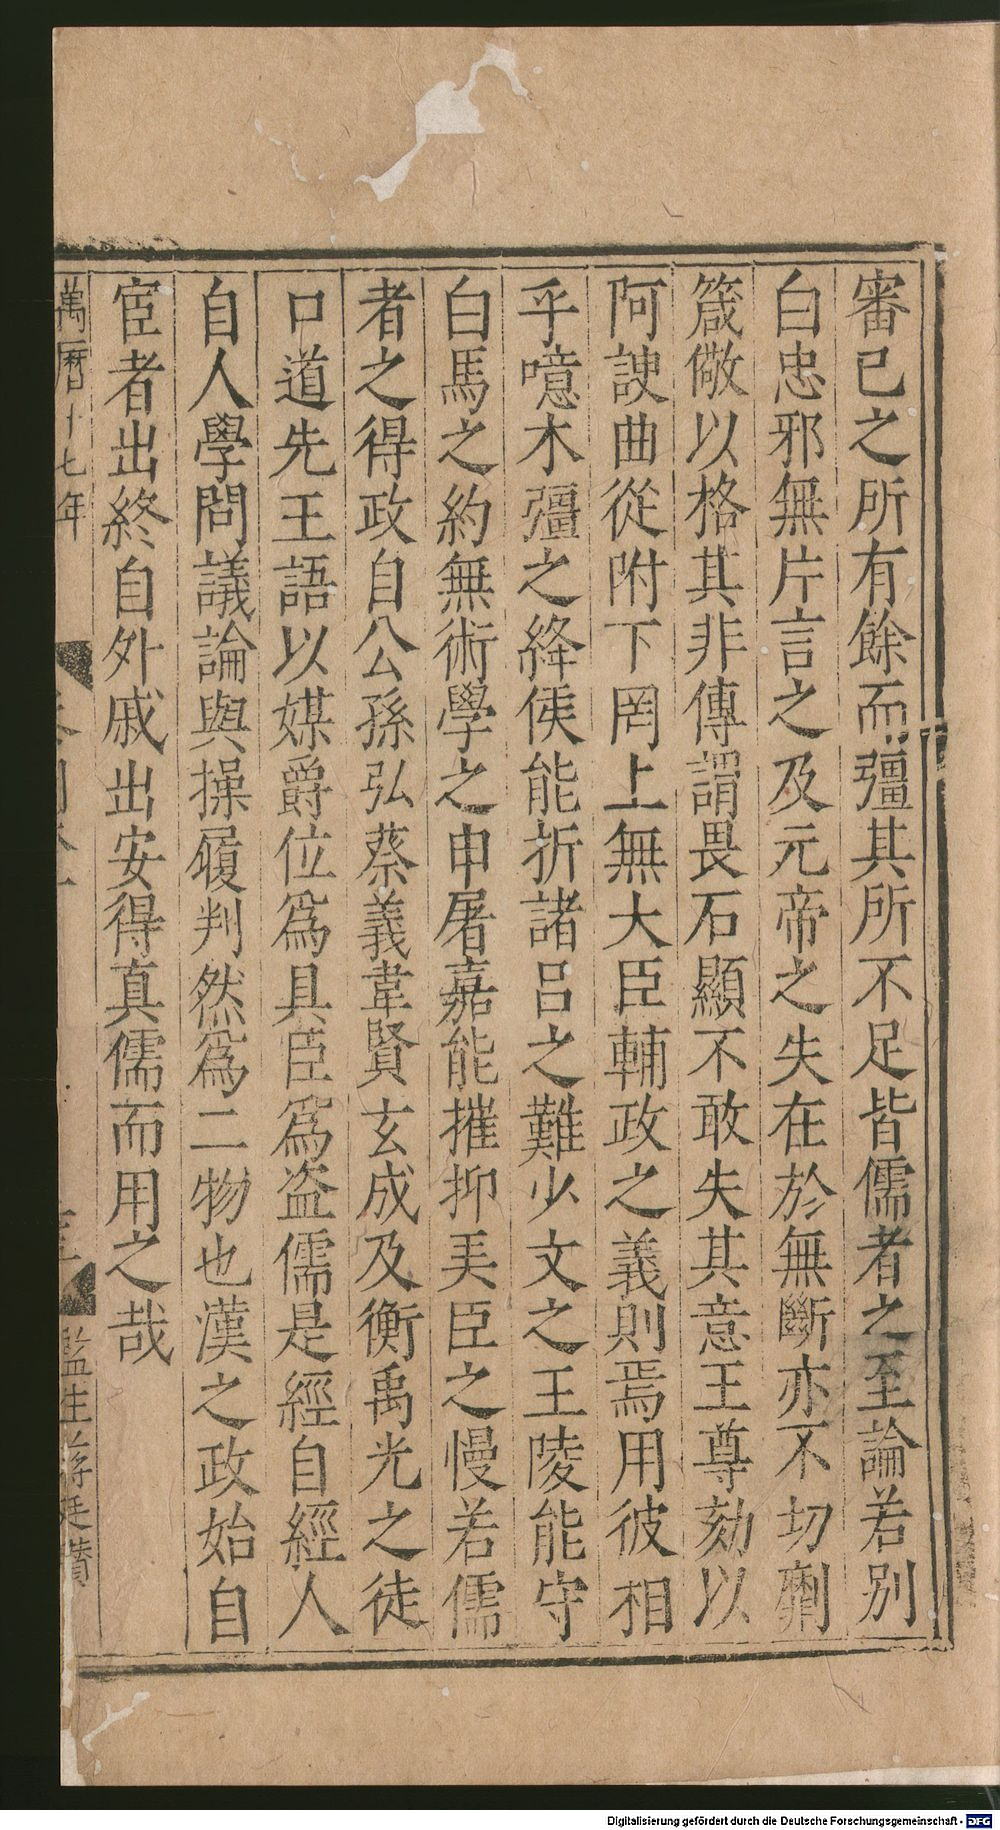 審已之所有餘而彊其所不足皆儒者之至論若別
白忠邪無片言之及元帝之失在於無斷亦不切劘
箴儆以格其非傳謂畏石顯不敢失其意王尊劾以
阿諛曲從附下罔上無大臣輔政之義則焉用彼相
乎噫木彊之絳侯能折諸呂之難少文之王陵能守
白馬之約無術學之申屠嘉能摧抑美臣之慢若儒
者之得政自公孫弘蔡義韋賢玄成及衡禹光之徒
口道先王語以媒爵位為具臣為盜儒是經自經人
自人學問議論與操履判然為二物也漢之政始自
宦者出終自外戚出安得真儒而用之哉
萬曆十七年
監生蔣廷
Digitalisierung gefördert durch die Deutsche Forschungsgemeinschaft - DFG